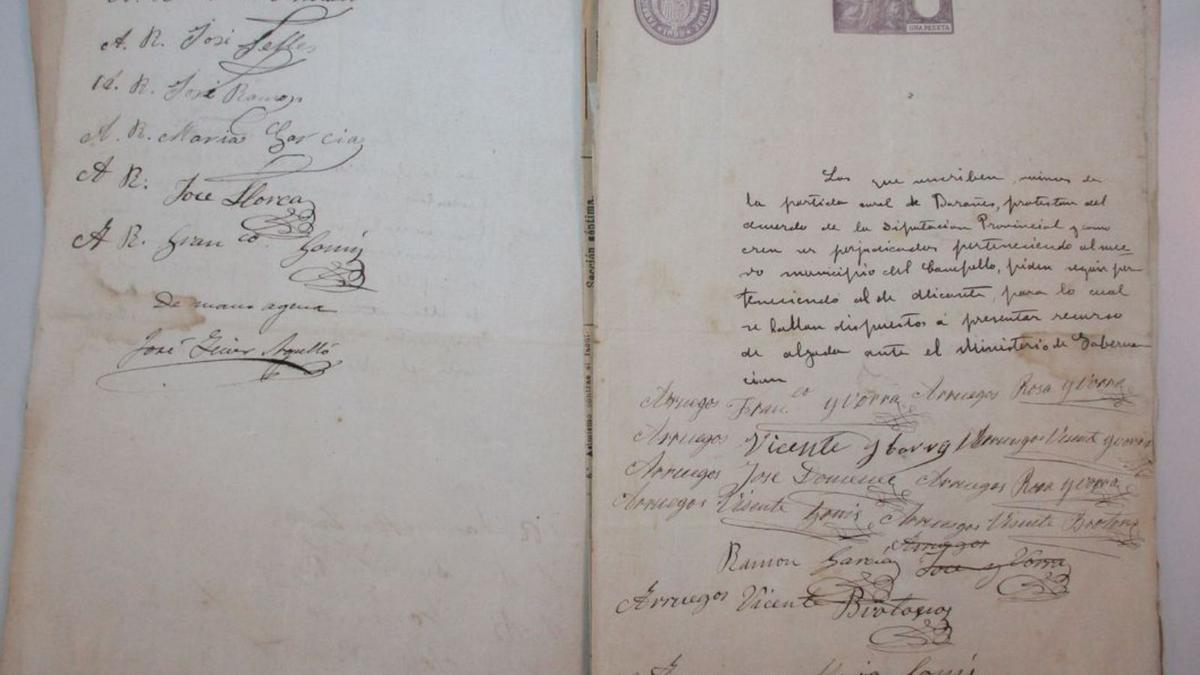 A. R. José Selles
Id. R. José Ramon
A. R. Maria Garcia
A R. Jose Llorca
A R. Fran co Gomis
De mano agena
José Giner Agulló
Sección séptima.
UNA PESETA
Los que suscriben, vecinos de
la partida rural de Barañes, protestan del
acuerdo de la Diputacion Provincial y como
creen ser perjudicados perteneciendo al nue-
vo municipio del Campello, piden seguir per
teneciendo al de Alicante, para lo cual
se hallan dispuestos á presentar recurso
de alzada ante el Ministerio de Goberna-
cion
Arruegos Fran co yvorra Arruegos Rosa yvorra
Arruegos Vicente Yborra Arruegos Visent yvorra
Arruegos Jose Domene Arruegos Rosa yvorra
Arruegos Visente Gomis Arruegos Visente
Arruegos
Ramon Garcia Jose yvorra
Arruegos Vicente
Gomis